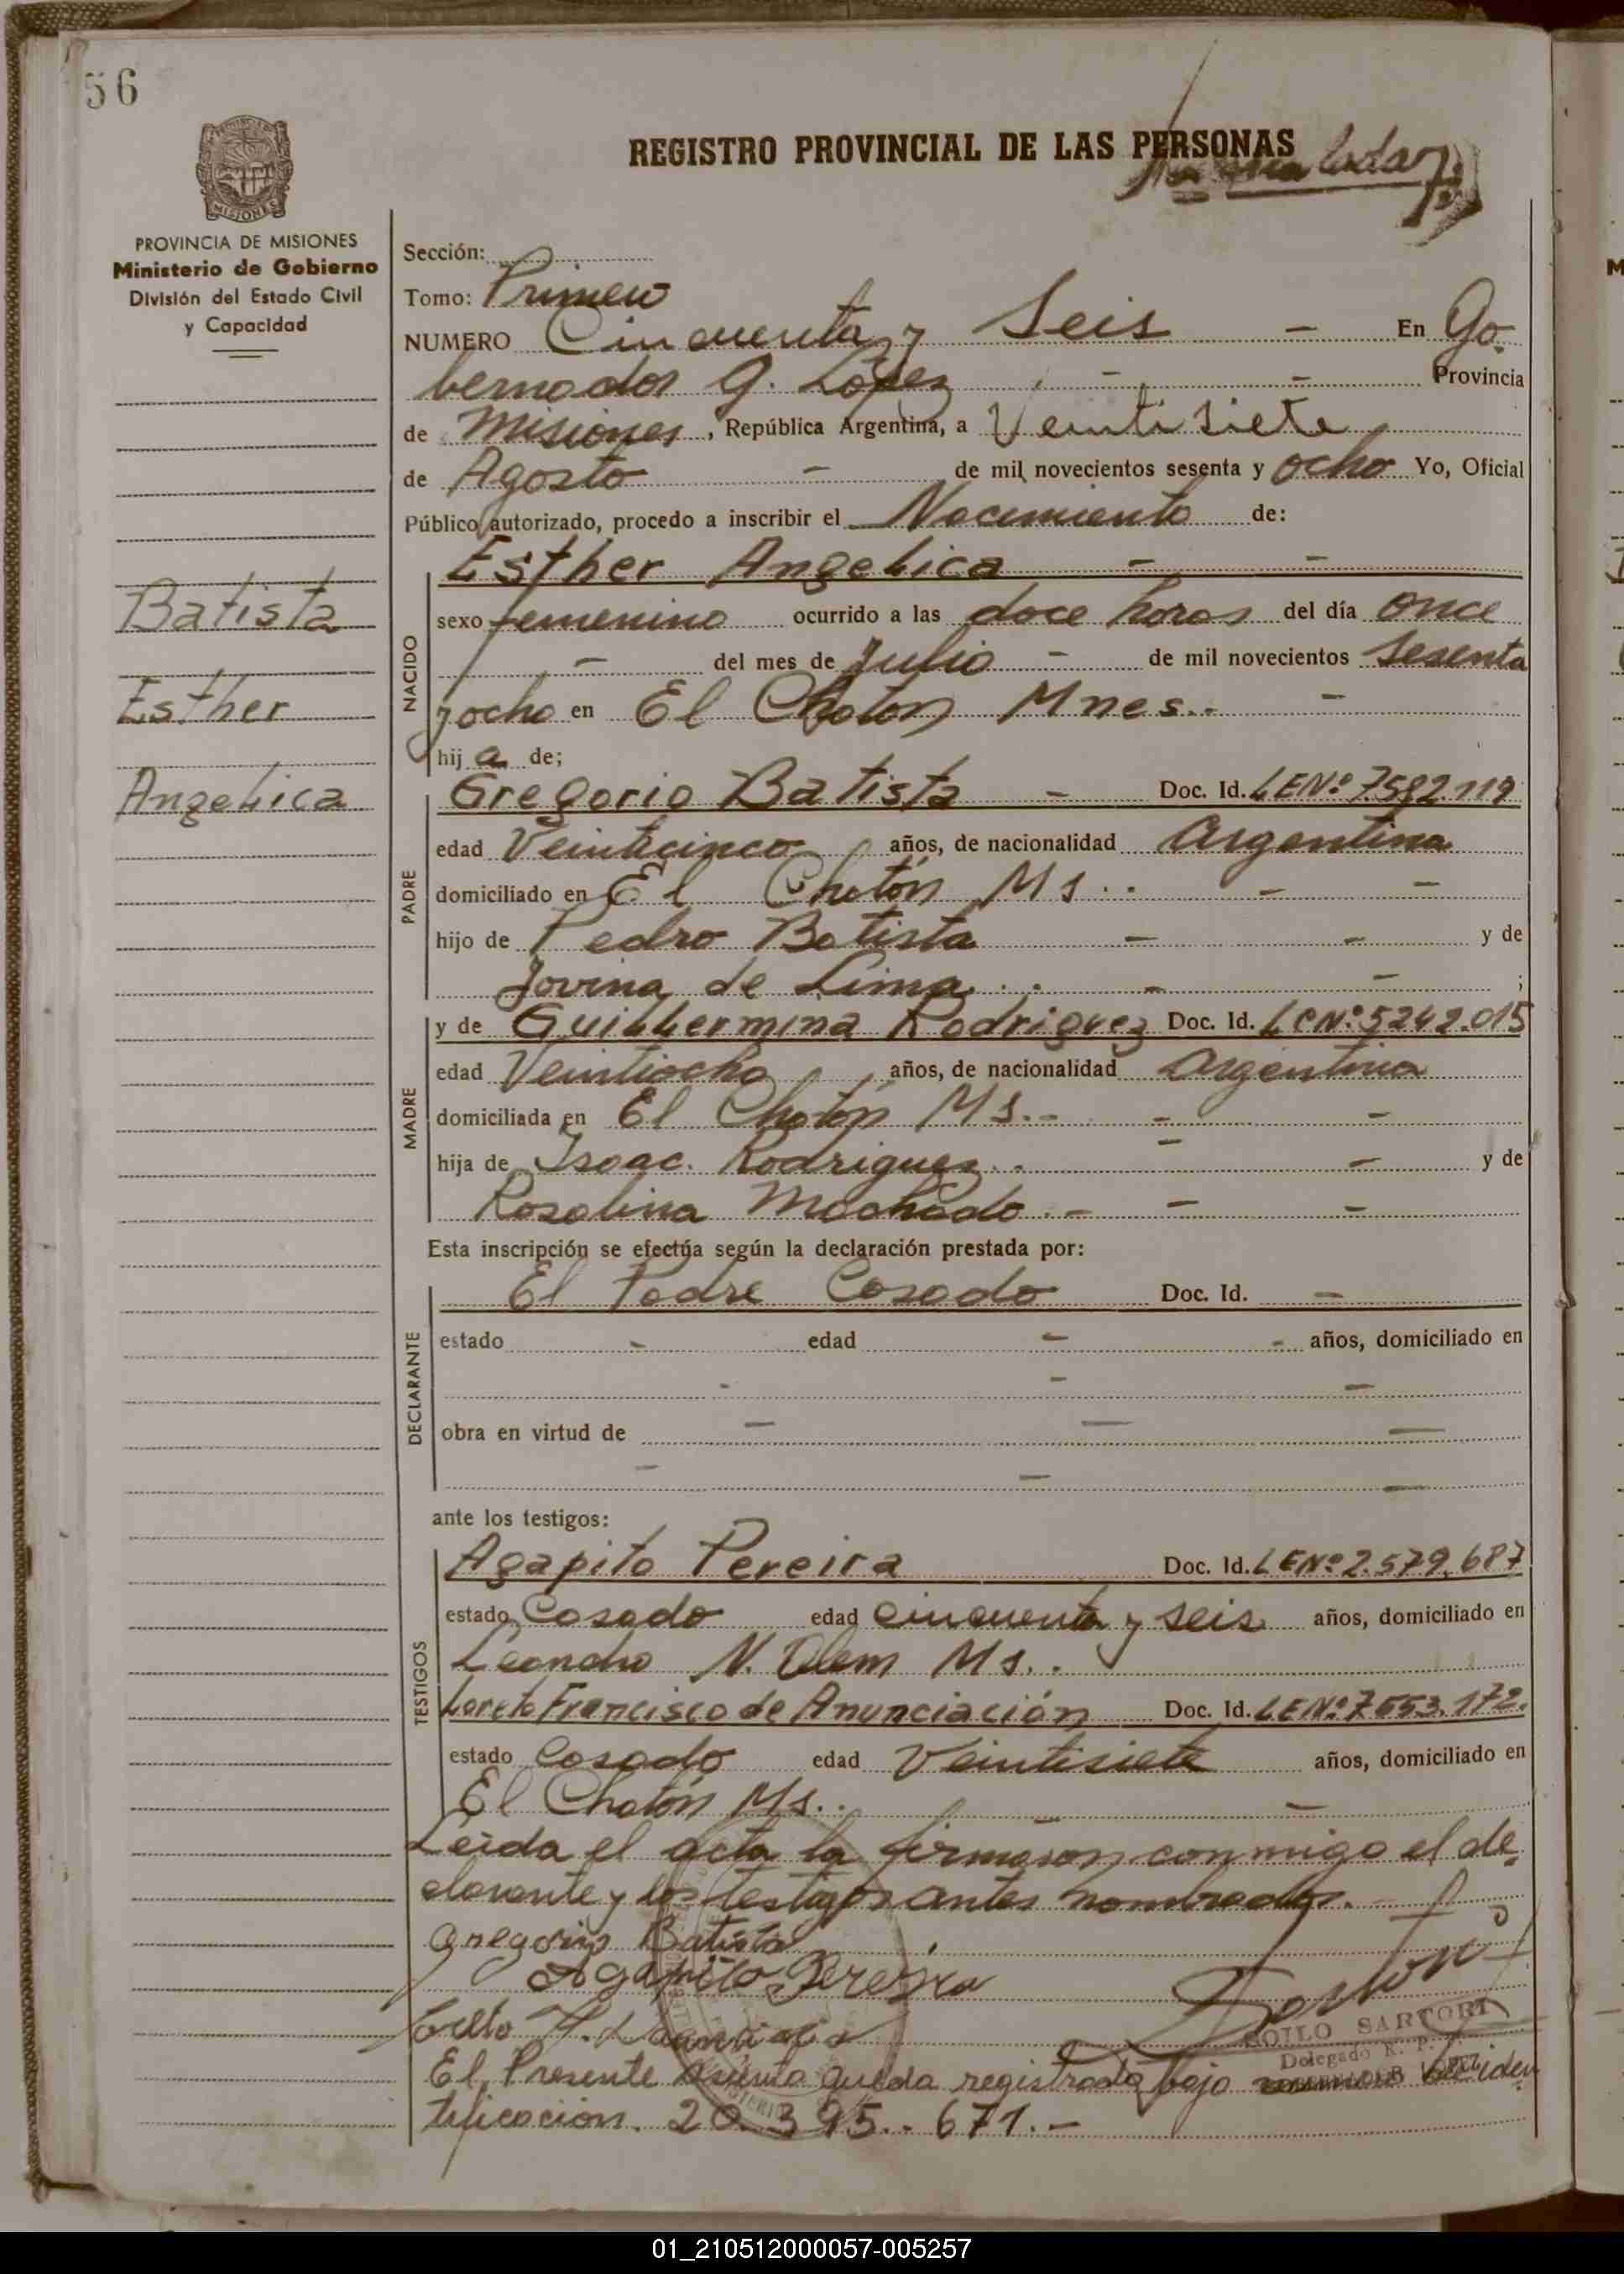 56
REGISTRO PROVINCIAL DE LAS PERSONAS
PROVINCIA DE MISIONES
Ministerio de Gobierno
División del Estado Civil
y Capacidad
Batista
Esther
Angelica
Sección:
Tomo: Primero
NUMERO Cincuenta y Seis - En Go
bernador G. López - - Provincia
de Misiones, República Argentina, a Veintisiete
de Agosto - de mil novecientos sesenta y ocho Yo, Oficial
Público autorizado, procedo a inscribir el Nacimiento de:
NACIDO
Esther Angelica - -
sexo femenino ocurrido a las doce horas del día once
- del mes de Julio - de mil novecientos sesenta
y ocho en El Chatón Mnes.- -
hij a de;
PADRE
Gregorio Batista - Doc. Id. LENº 7.582.119
edad Veinticinco años, de nacionalidad Argentina
domiciliado en El Chatón Ms.. - -
hijo de Pedro Batista - - y de
Jovina de Lima.. - - ;
MADRE
y de Guilhermina Rodriguez Doc. Id. LCNº 5242.015
edad Veintiocho años, de nacionalidad Argentina
domiciliada en El Chatón Ms.- - -
hija de Isaac. Rodriguez.. - - y de
Rosalina Machado.- - -
Esta inscripción se efectúa según la declaración prestada por:
DECLARANTE
El Padre Casado Doc. Id. -
estado - edad - - años, domiciliado en
- - -
obra en virtud de - - -
- - -
ante los testigos:
TESTIGOS
Agapito Pereira Doc. Id. LENº 2.579.687
estado Casado edad cincuenta y seis años, domiciliado en
Leandro N. Alem Ms..
Loreto Francisco de Anunciación Doc. Id. LENº 7553.172.
estado Casado edad Veintisiete años, domiciliado en
El Chatón Ms.. -
Leida el acta la firmaron conmigo el de
clarante y los testigos antes nombrados. -
Gregorio Batista
Agapito Pereira
Loreto F. d
ZOILO SARTORI
Delegado R. P. P.
El Presente asiento queda registrado bajo de iden
tificación. 20.395..671.-
01_210512000057-005257